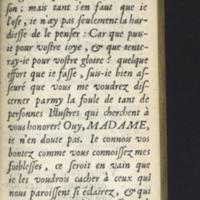 son; mais tant s'en faut que ie
l'ose, ie n'ay pas seulement la har-
diesse de le penser: Car que puis-
ie pour vostre ioye, & que tente-
ray-ie pour vostre gloire? quelque
effort que ie fasse, suis-ie bien as-
seuré que vous me voudrez dis-
cerner parmy la foule de tant de
personnes Illustres qui cherchent à
vous honorer? Ouy, MADAME,
ie n'en doute pas. Ie connois vos
bontez comme vous connoissez mes
foiblesses, ce seroit en vain que
ie les voudrois cacher à ceux qui
nous paroissent si éclairez, & qui